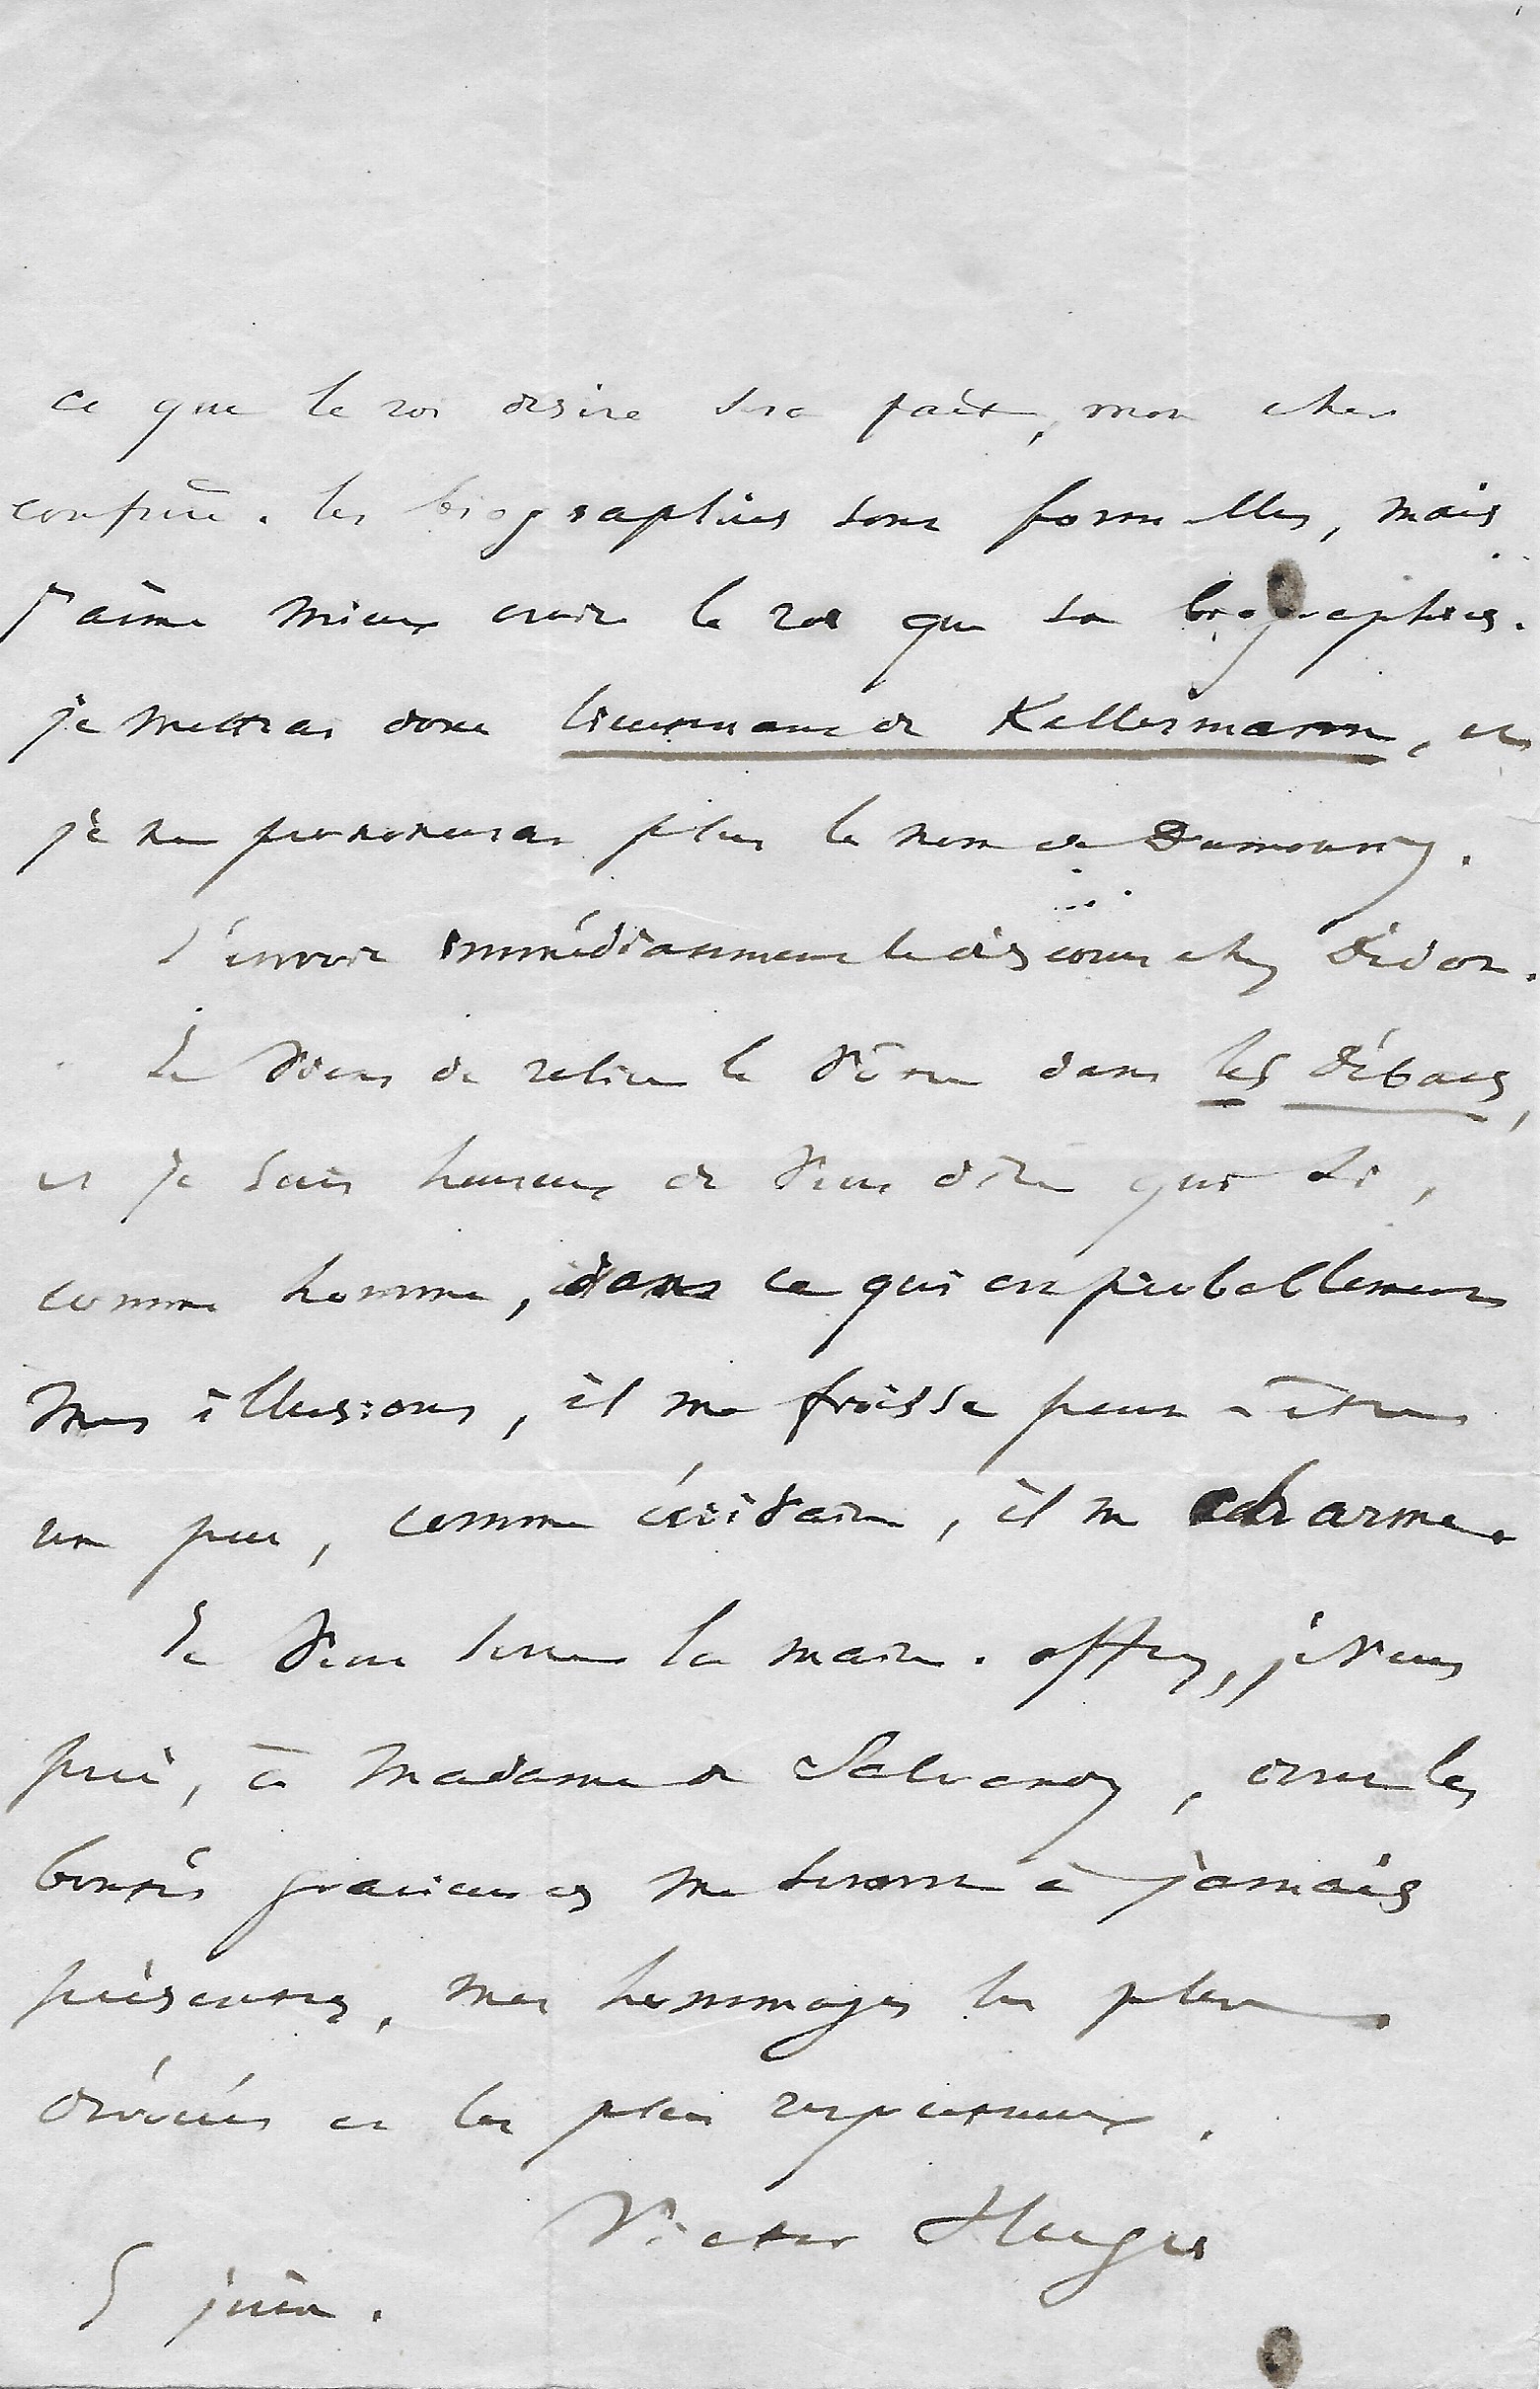 ce que le roi désire sera fait, mon cher
confrère. les biographies sont formelles, mais
j'aime mieux croire le roi que sa biographies.
je mettrai donc lieutenant de Kellermann, et
je ne prononcerai plus le nom de Dumouriez.
J'envoie immédiatement le discours chez Didot.
Je viens de relire le vôtre dans les Débats,
et je suis heureux de vous dire que si,
comme homme, dans ce qui est probablement
mes illusions, il me froisse peut-être
un peu, comme écrivain, il me charme.
Je vous serre la main. offrez, je vous
prie, à Madame de Salvandy, dont les
bontés gracieuses me seront à jamais
présentes, mes hommages les plus
dévoués et les plus respectueux.
Victor Hugo
5 juin.